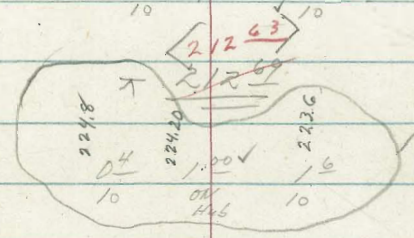 10 10
212 63
212 60
224.8 224.20 223.6
0 4 1.00 ✓ 1 6
10 ON 10
Hub